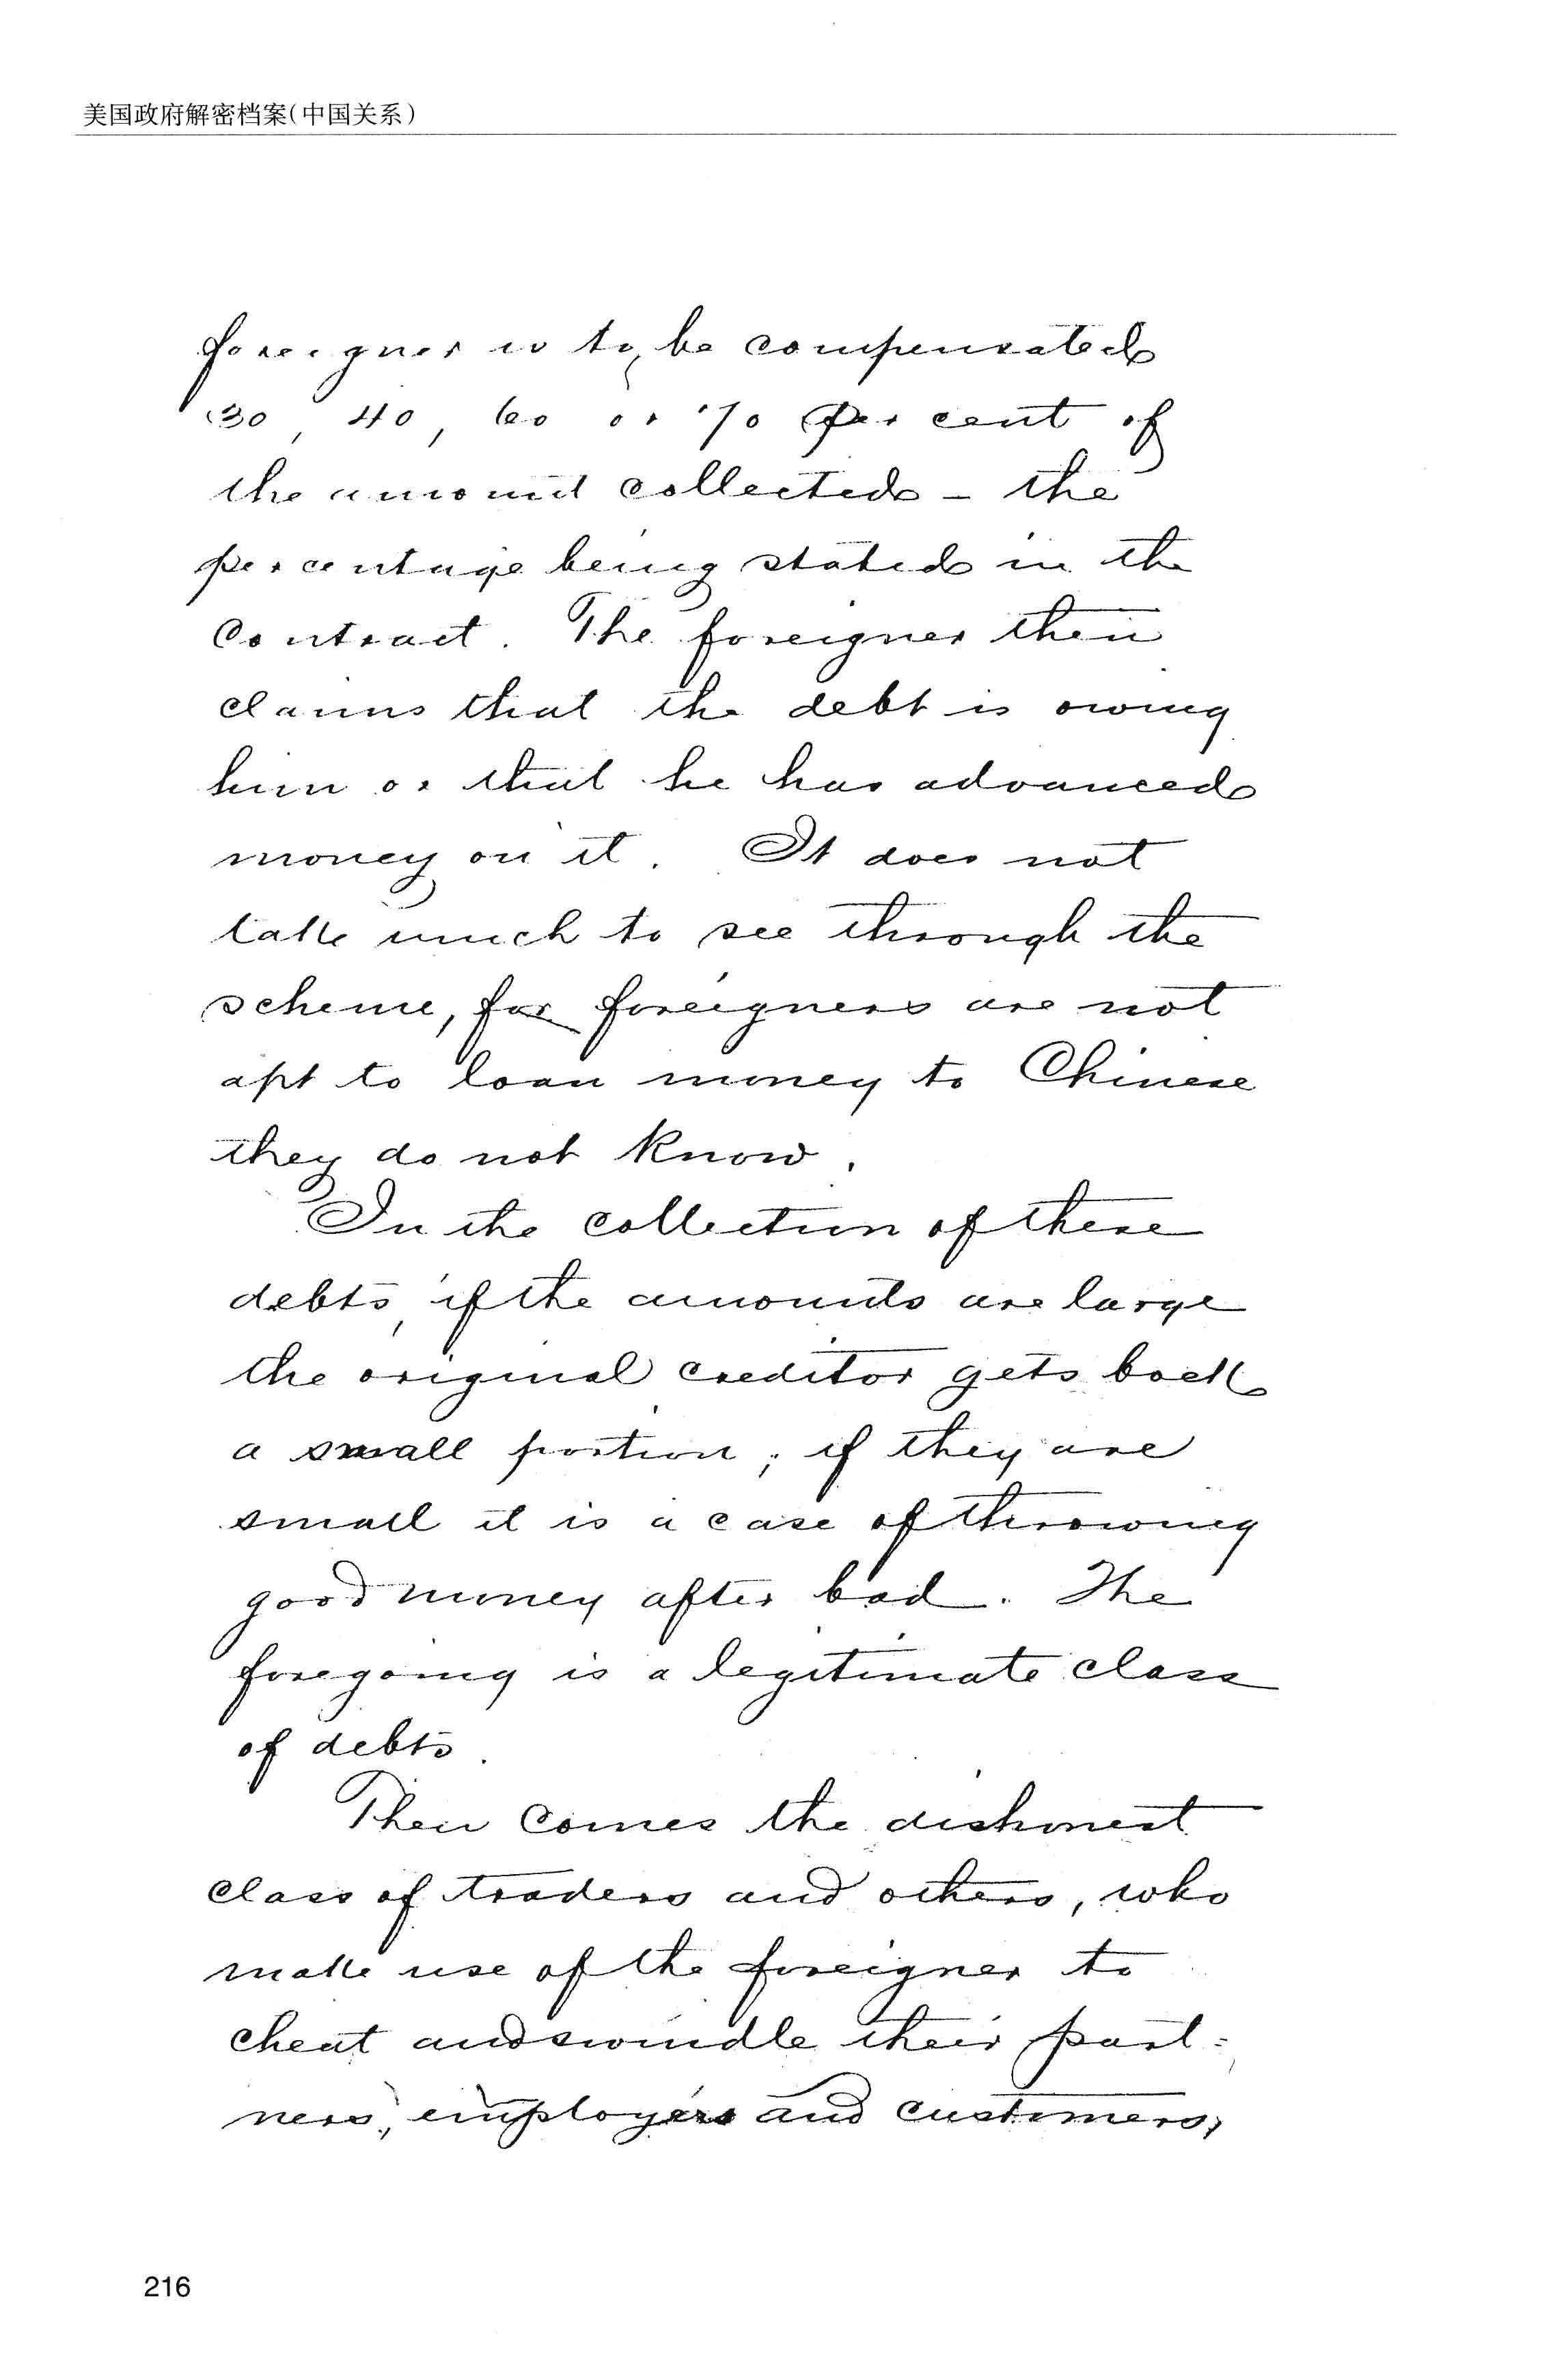 美国政府解密档案(中国关系)
foreigner is to be compensated
30, 40, 60 or 70 per cent of
the amount collected - the
percentage being stated in the
contract. The foreigner then
claims that the debt is owing
him or that he has advanced
money on it. It does not
take much to see through the
scheme, for foreigners are not
apt to loan money to Chinese
they do not know.
In the collection of these
debts, if the amounts are large
the original creditor gets back
a small portion; if they are
small it is a case of throwing
good money after bad. The
foregoing is a legitimate class
of debts.
Then comes the dishonest
class of traders and others, who
make use of the foreigner to
cheat and swindle their part=
ners, employers and customers,
216